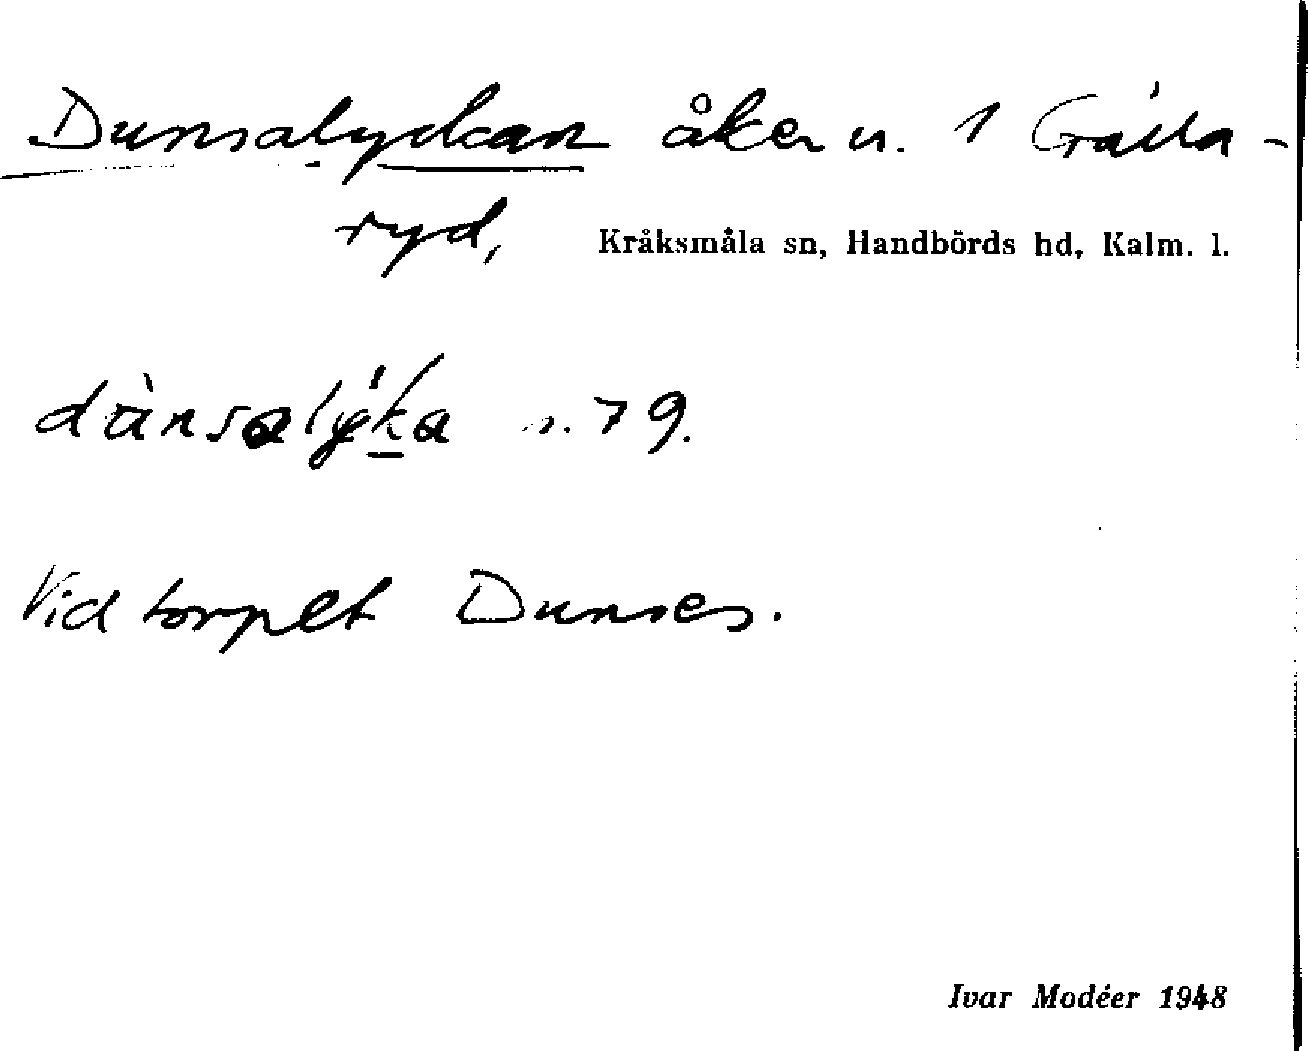 Dunsalyckan åker u. 1 Gälla-
ryd,
Kråksmåla sn, Handbörds hd, Kalm. l.
dùnsalýka 79.
Vid torpet Dunses.
Ivar Modéer 1948